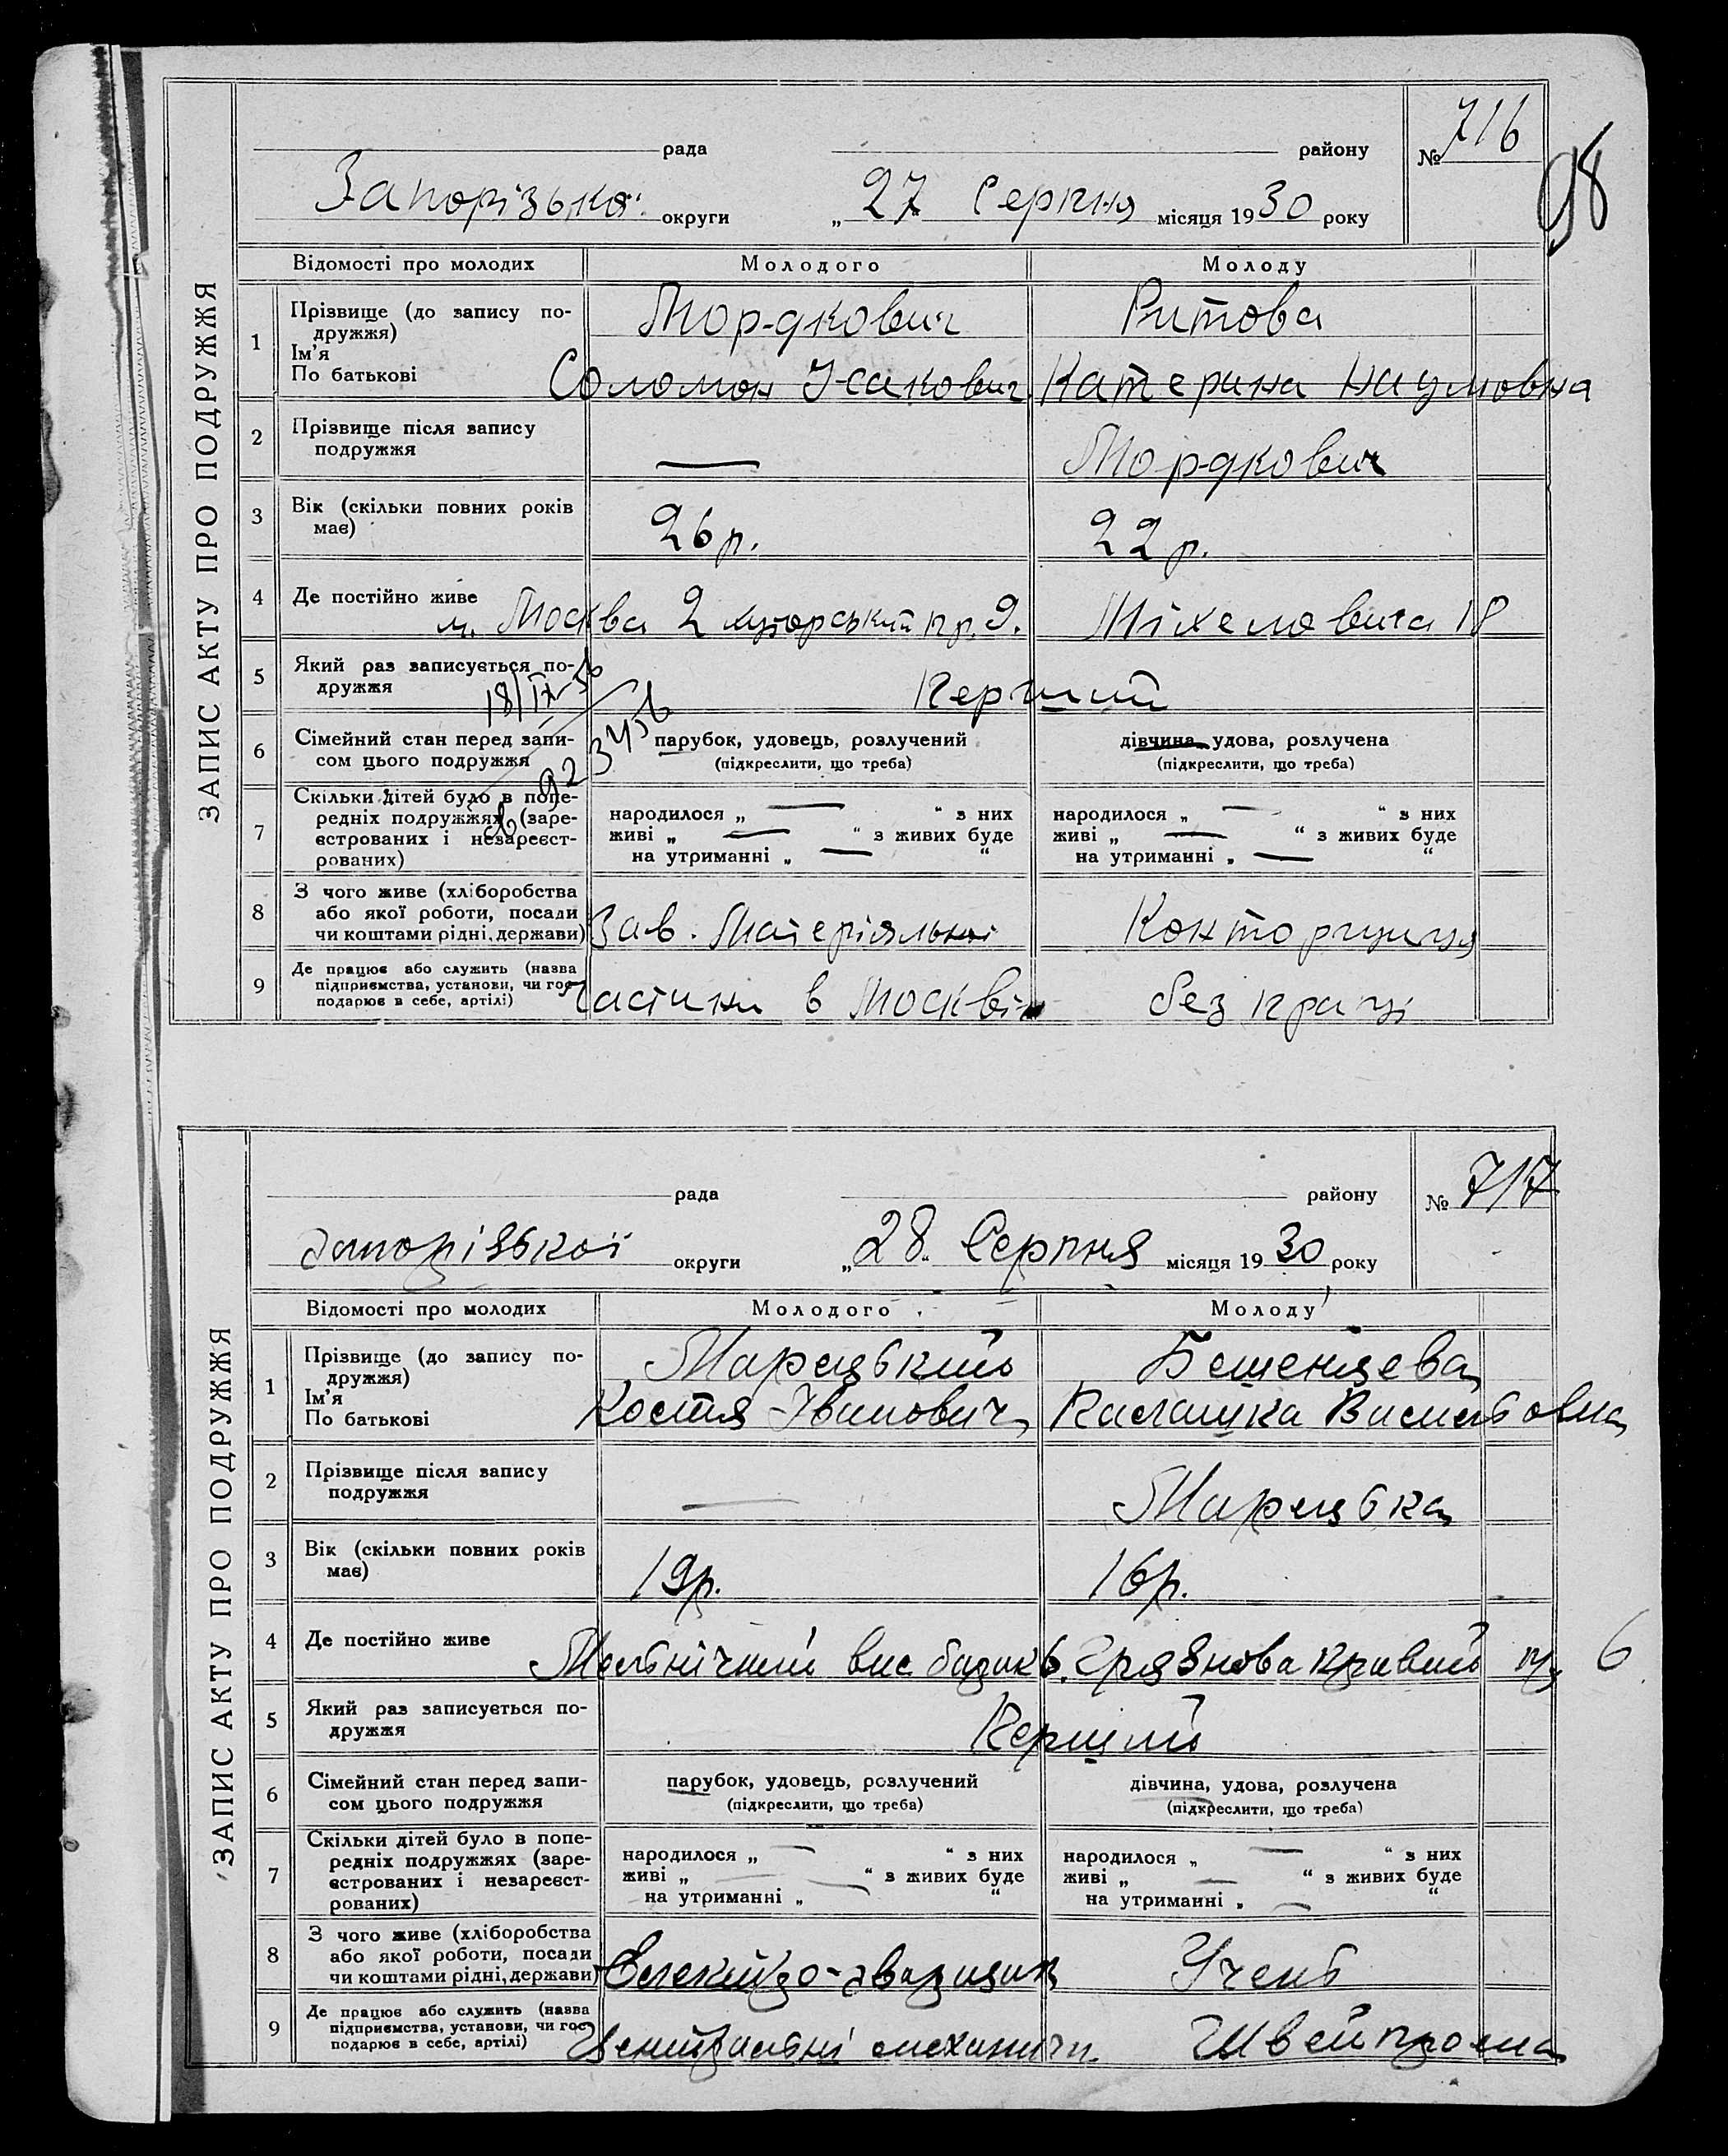 98
ЗАПИС АКТУ ПРО ПОДРУЖЖЯ
рада району № 716
Запорізька округи „ 27 Серпня місяця 1930 року
Відомості про молодих Молодого Молоду
1 Прізвище (до запису по- Мордкович Ритова
дружжя)
Ім'я
По батькові Соломон Ісакович Катерина Наумовна
2 Прізвище після запису
подружжя — Мордкович
3 Вік (скільки повних років
має) 26 р. 22 р.
4 Де постійно живе м. Москва 2 хуторський пр. 9. Міхеловича 18
5 Який раз записується по-
дружжя Перший
18/IX-56
6 Сімейний стан перед запи- парубок, удовець, розлучений дівчина, удова, розлучена
сом цього подружжя (підкреслити, що треба) (підкреслити, що треба)
7 Скільки дітей було в попе-
редніх подружжях (заре- народилося „ — “ з них народилося „ — “ з них
єстрованих і незареєст- живі „ — “ з живих буде живі „ — “ з живих буде
рованих) на утриманні „ — “ на утриманні „ — “
8 З чого живе (хліборобства
або якої роботи, посади Зав. Матеріяльної Конторщиця
чи коштами рідні, держави)
9 Де працює або служить (назва
підприємства, установи, чи гос- частини в Москві без праці
подарює в себе, артілі)
ЗАПИС АКТУ ПРО ПОДРУЖЖЯ
рада району № 717
Запорізької округи „ 28 Серпня місяця 1930 року
Відомості про молодих Молодого Молоду
1 Прізвище (до запису по- Марецький Бешенцева
дружжя)
Ім'я
По батькові Костя Іванович
2 Прізвище після запису
подружжя — Марецька
3 Вік (скільки повних років
має) 19р. 16р.
4 Де постійно живе 6
5 Який раз записується по-
дружжя Перший
6 Сімейний стан перед запи- парубок, удовець, розлучений дівчина, удова, розлучена
сом цього подружжя (підкреслити, що треба) (підкреслити, що треба)
7 Скільки дітей було в попе-
редніх подружжях (заре- народилося „ — “ з них народилося „ — “ з них
єстрованих і незареєст- живі „ — “ з живих буде живі „ — “ з живих буде
рованих) на утриманні „ — “ на утриманні „ — “
8 З чого живе (хліборобства
або якої роботи, посади Електро-зварщик Учень
чи коштами рідні, держави)
9 Де працює або служить (назва
підприємства, установи, чи гос- Центральні механичн. Швейпрома
подарює в себе, артілі)